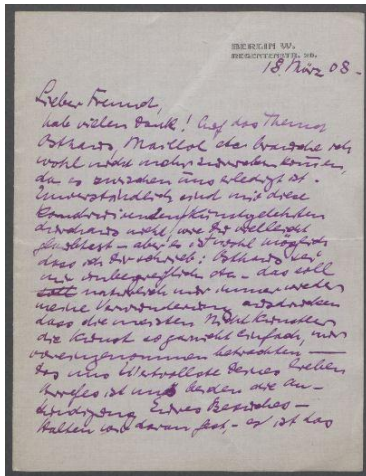 BERLIN W.
REGENTENSTR. 20.
18 März 08.
Lieber Freund,
hab vielen Dank! Auf das Thema
Osthaus, Maillol etc. brauche ich
wohl nicht mehr zurückkommen,
da es zwischen uns erledigt ist.
Unverständlich sind mir diese
Kunstgelehrten
durchaus nicht, wie Du vielleicht
glaubtest - aber es ist wohl möglich
dass ich Dir schrieb: Osthaus sei
mir unbegreiflich etc. - das soll
natürlich nur immer wieder
meine Verwunderung ausdrücken
dass die meisten Nicht Künstler
die Kunst so garnicht einfach, und
voreingenommen betrachten —
Das uns Wertvollste Deines lieben
Briefes ist uns beiden die An-
kündigung Eures Besuches -
Halten wir daran fest, - es ist das